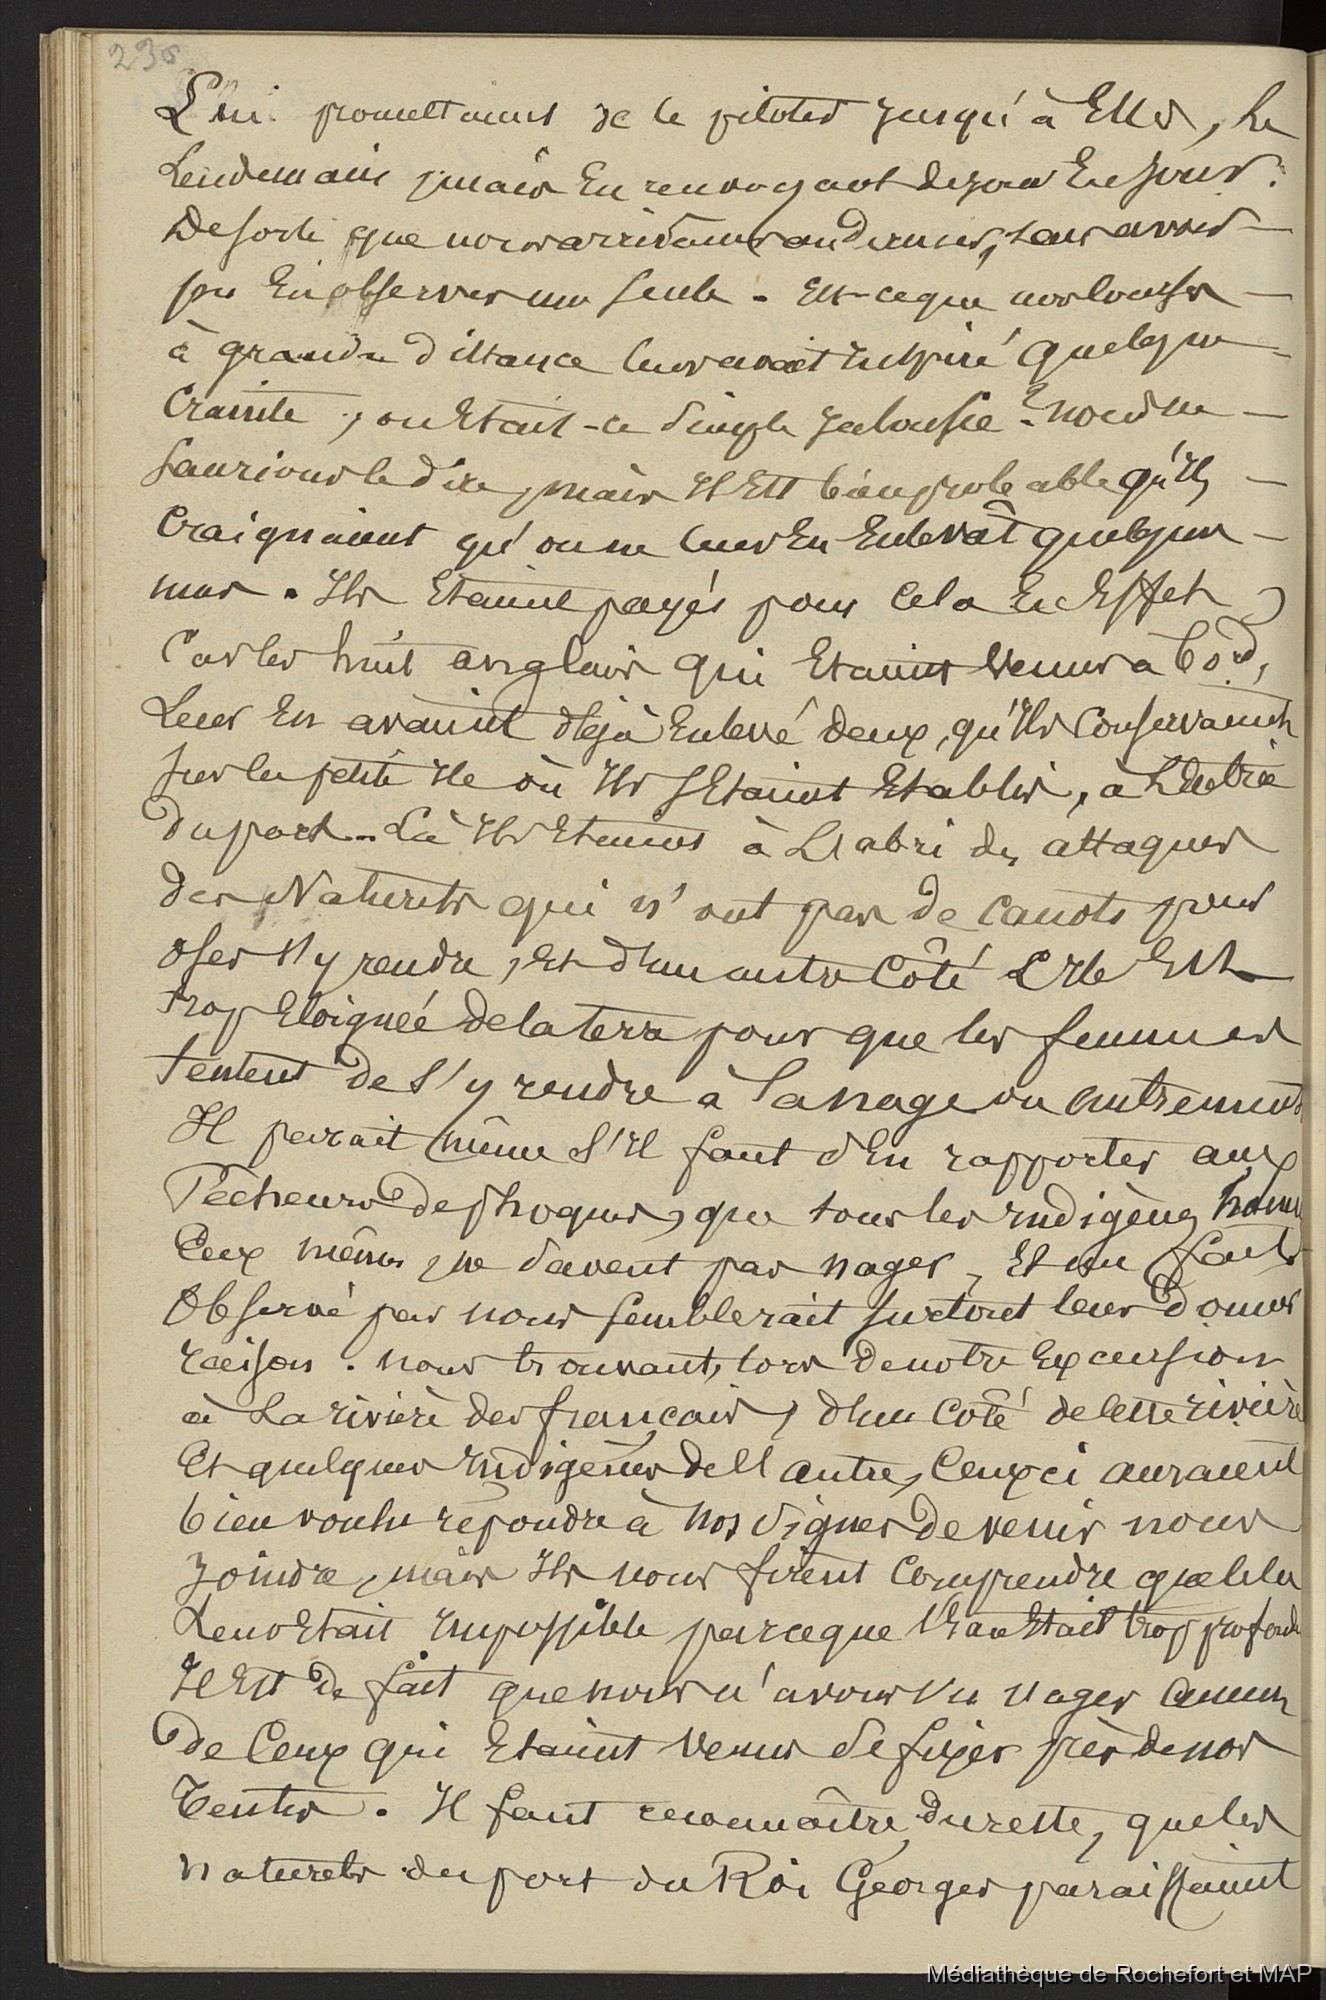 235
Lui promettaient de le piloter jusqu'à Elles, le
Lendemain, mais En renvoyant de jour En jour.
De sorte que nous arrivâmes au dernier, sans avoir
pu En observer une seule. Est-ce que nos longues
à grande distance leur avait Inspiré quelque
Crainte, ou Etait-ce simple Jalousie ? nous ne
saurions le dire, mais Il Est bien probable qu'Ils
Craignaient qu'on ne leur En Enlevât quelques
unes. Ils Etaient payés pour Cela En Effet,
Car les huit anglais qui Etaient Venus à bord,
Leur En avaient déjà Enlevé deux, qu'Ils Conservaient
sur la petite Ile où Ils s'Etaient Etablis, à L'Entrée
du port. Là Ils Etaient à L'abri des attaques
des Naturels qui n'ont pas de Canots pour
oser s'y rendre, Et d'un autre Côté L'Ile Est
trop Eloignée de la terre pour que les femmes
tentent de s'y rendre à la nage ou autrement
Il parait même s'Il faut s'En rapporter aux
Pêcheurs de phoques, que tous les Indigènes, hommes
Eux mêmes, ne savent pas nager, Et un fait
Observé par nous semblerait surtout leur donner
raison. nous trouvant, lors de notre Excursion
à La rivière des français, d'un Côté de cette rivière
Et quelques Indigènes de l'autre, Ceux ci auraient
bien voulu répondre à nos signes de venir nous
Joindre, mais Ils nous firent Comprendre que Cela
Leur Etait Impossible parce que l'Eau Etait trop profonde
Il Est de fait que nous n'avons Vu nager aucun
de Ceux qui Etaient Venus se fixer près de nos
Tentes. Il faut reconnaître, du reste, que les
naturels du port du Roi Georges paraissaient
Médiathèque de Rochefort et MAP